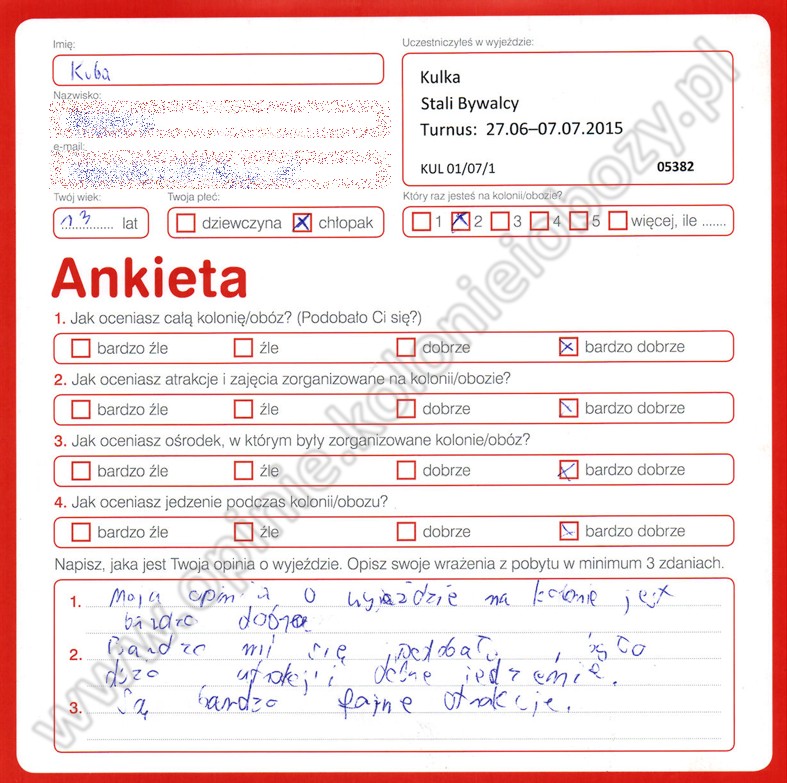 Imię:
Kuba
Nazwisko:
e-mail:
Twój wiek:
13 lat
Twoja płeć:
dziewczyna chłopak
Uczestniczyłeś w wyjeździe:
Kulka
Stali Bywalcy
Turnus: 27.06–07.07.2015
KUL 01/07/1 05382
Który raz jesteś na kolonii/obozie?
1 2 3 4 5 więcej, ile .......
Ankieta
1. Jak oceniasz całą kolonię/obóz? (Podobało Ci się?)
bardzo źle źle dobrze bardzo dobrze
2. Jak oceniasz atrakcje i zajęcia zorganizowane na kolonii/obozie?
bardzo źle źle dobrze bardzo dobrze
3. Jak oceniasz ośrodek, w którym były zorganizowane kolonie/obóz?
bardzo źle źle dobrze bardzo dobrze
4. Jak oceniasz jedzenie podczas kolonii/obozu?
bardzo źle źle dobrze bardzo dobrze
Napisz, jaka jest Twoja opinia o wyjeździe. Opisz swoje wrażenia z pobytu w minimum 3 zdaniach.
1. Moja opinia o wyjeździe na kolonie jest
bardzo dobra
2. Bardzo mi się podobało,
atrakcji i dobre jedzenie.
3. Są bardzo fajne atrakcje.
www.opinie.kolonieiobozy.pl